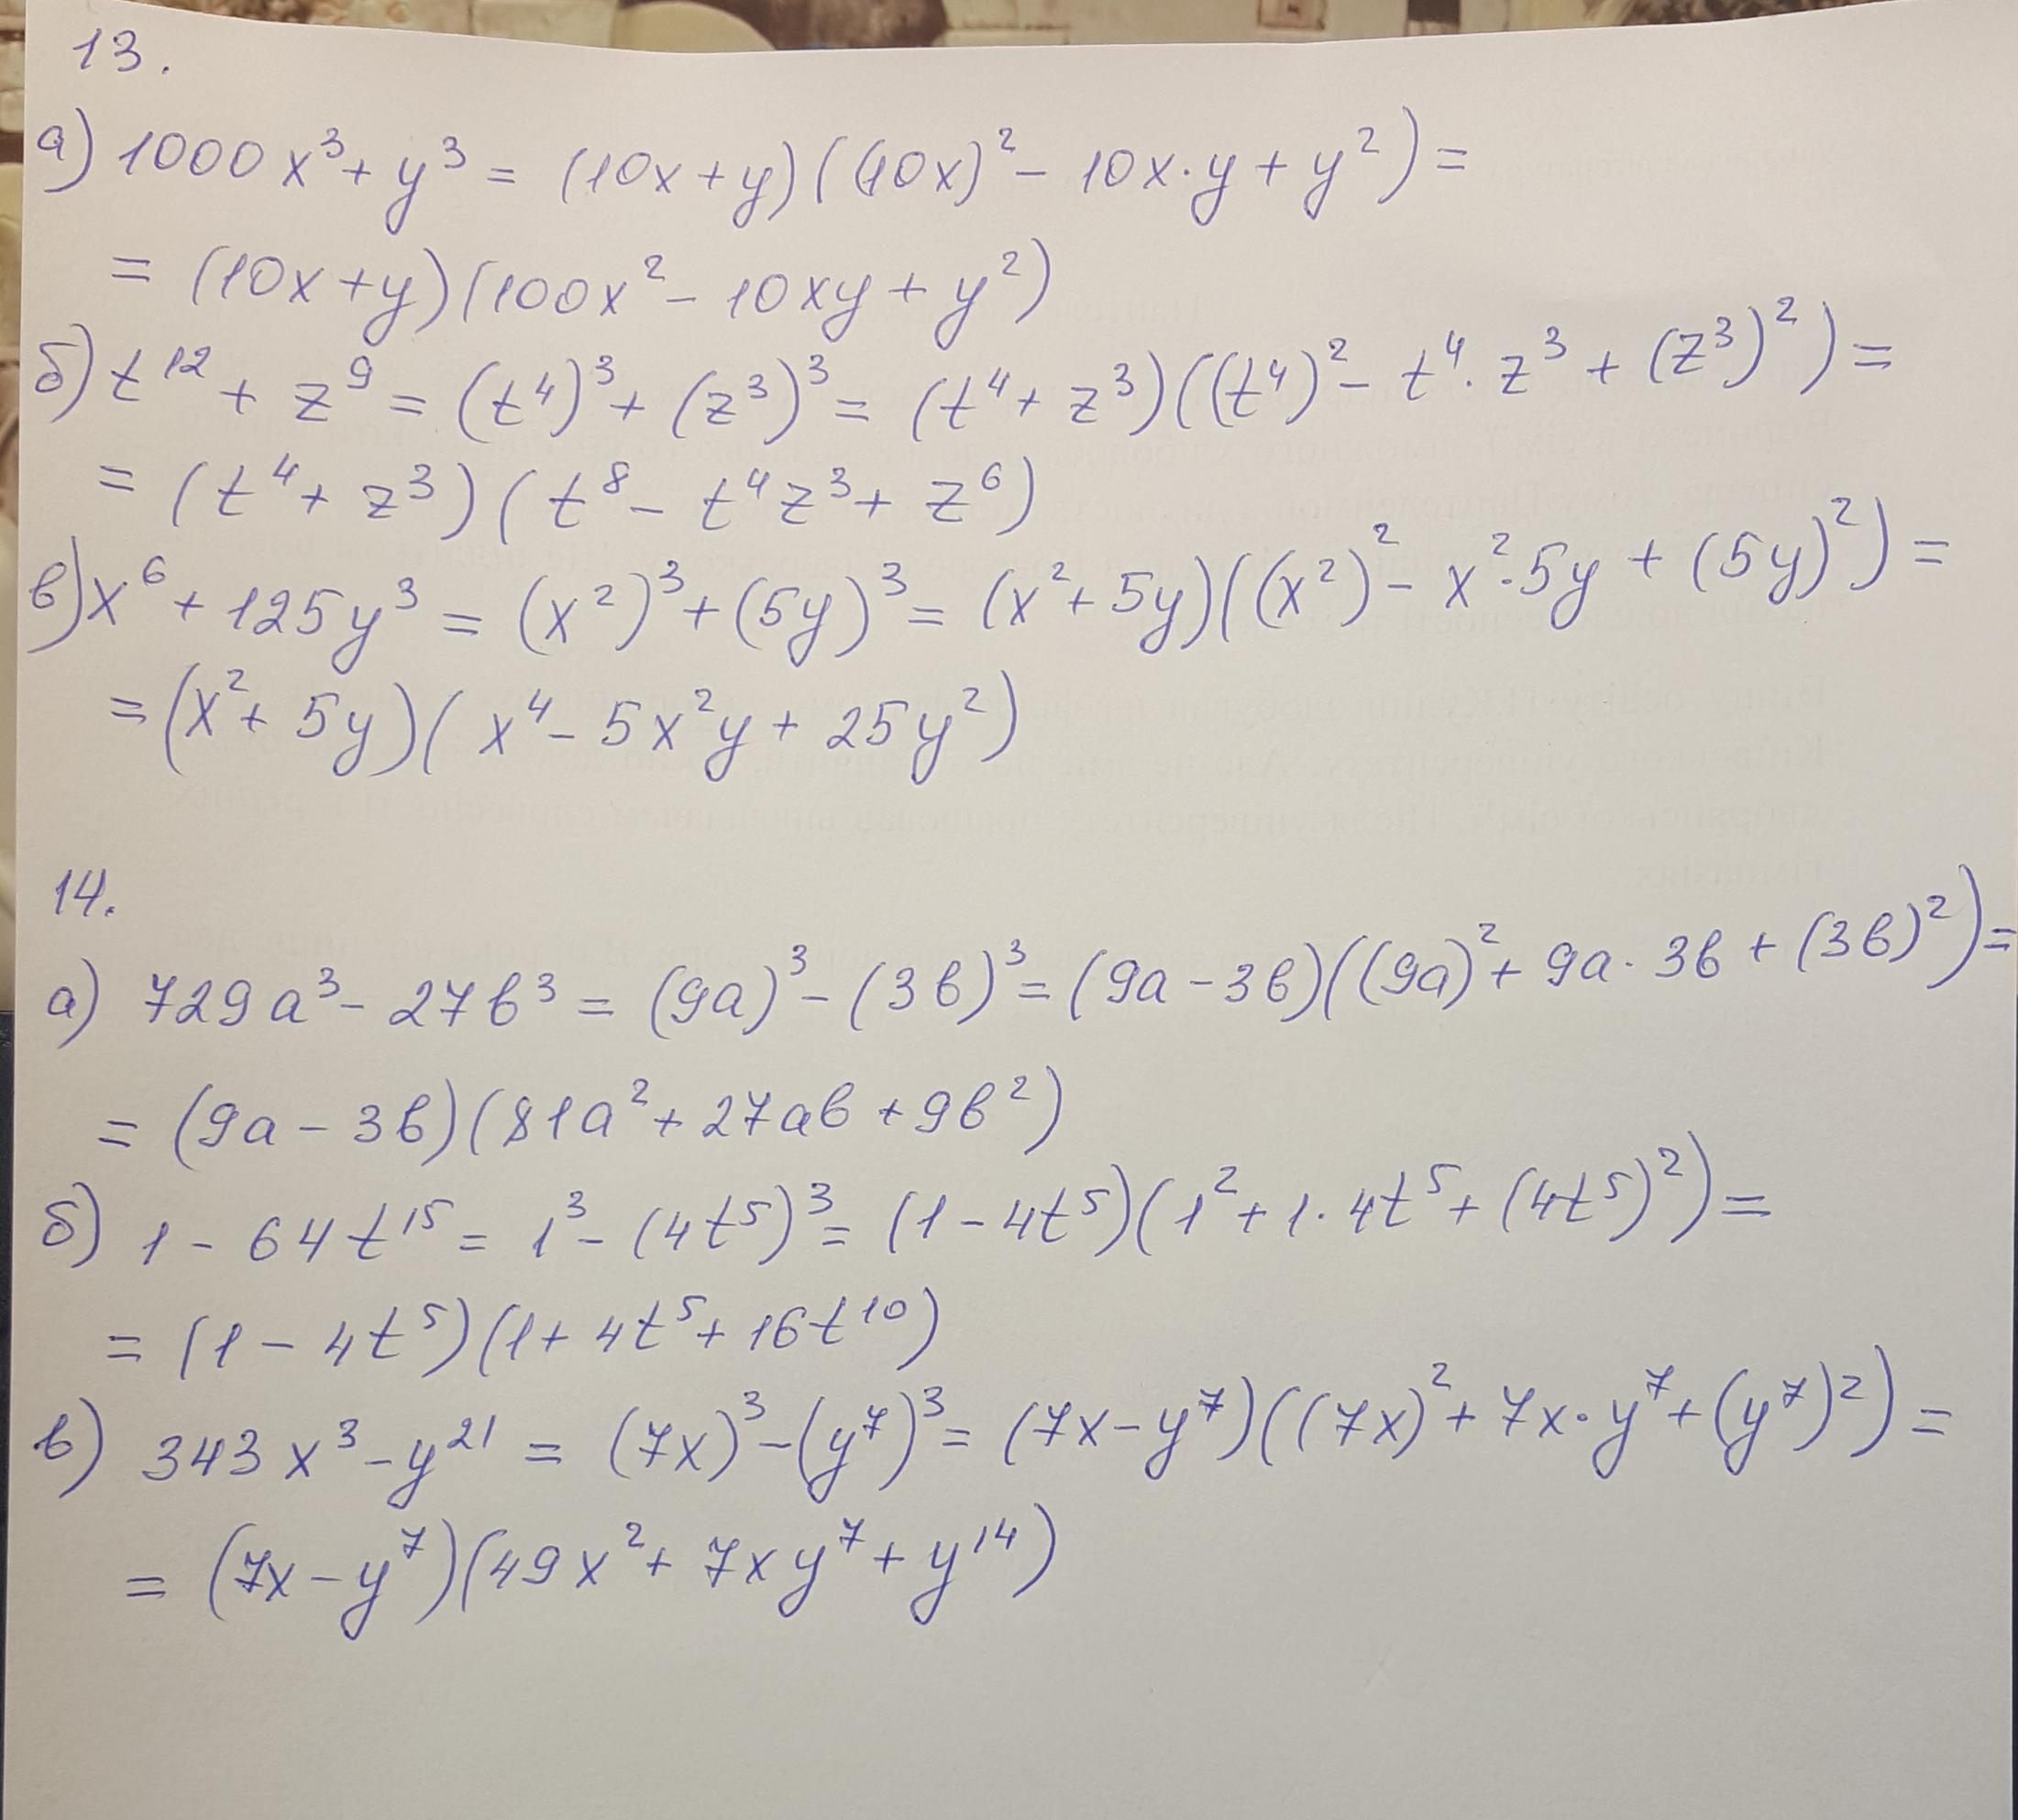 13.
а) 1000x³ + y³ = (10x + y)((10x)² - 10x · y + y²) =
= (10x + y)(100x² - 10xy + y²)
б) t¹² + z⁹ = (t⁴)³ + (z³)³ = (t⁴ + z³)((t⁴)² - t⁴ · z³ + (z³)²) =
= (t⁴ + z³)(t⁸ - t⁴z³ + z⁶)
в) x⁶ + 125y³ = (x²)³ + (5y)³ = (x² + 5y)((x²)² - x² · 5y + (5y)²) =
= (x² + 5y)(x⁴ - 5x²y + 25y²)
14.
а) 729a³ - 27b³ = (9a)³ - (3b)³ = (9a - 3b)((9a)² + 9a · 3b + (3b)²) =
= (9a - 3b)(81a² + 27ab + 9b²)
б) 1 - 64t¹⁵ = 1³ - (4t⁵)³ = (1 - 4t⁵)(1² + 1 · 4t⁵ + (4t⁵)²) =
= (1 - 4t⁵)(1 + 4t⁵ + 16t¹⁰)
в) 343x³ - y²¹ = (7x)³ - (y⁷)³ = (7x - y⁷)((7x)² + 7x · y⁷ + (y⁷)²) =
= (7x - y⁷)(49x² + 7xy⁷ + y¹⁴)